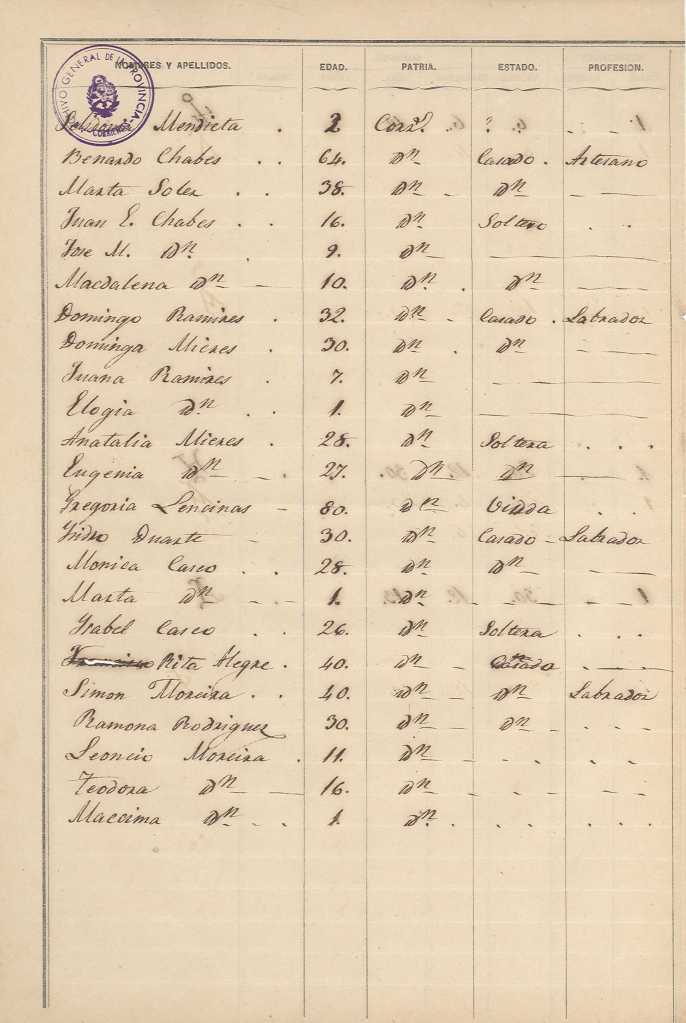 ARCHIVO GENERAL DE LA PROVINCIA - CORRIENTES -
NOMBRES Y APELLIDOS. EDAD. PATRIA. ESTADO. PROFESION.
Mendieta . 2 Corr.s
Benardo Chabes . . 64. Dn Casado . Artesano
Marta Soler . . 38. Dn - Dn - -
Juan E. Chabes . . 16. Dn Soltero . .
Jose M. Dn . 9. Dn - - -
Macdalena Dn - 10. Dn . Dn - -
Domingo Ramires . 32. Dn - Casado . Labrador
Dominga Mieres . 30. Dn . Dn - -
Juana Ramires . 7. Dn - - -
Elogia Dn . . 1. Dn - - -
Anatalia Mieres . 28. Dn Soltera . . .
Eugenia Dn - . 27. Dn. Dn - -
Gregoria Lencinas - 80. Dn Viuda . .
Ysidro Duarte - 30. Dn Casado - Labrador
Monica Casco . . 28. Dn Dn - -
Marta Dn - - 1. Dn - - -
Ysabel Casco . . 26. Dn Soltera . . .
Rita Alegre . 40. Dn - Dn . - -
Simon Moreira . . 40. Dn - Dn Labrador
Ramona Rodriguez 30. Dn - Dn - . . .
Leoncio Moreira . 11. Dn - - . . .
Teodora Dn - 16. Dn - - . - -
Macsima Dn - . 1. Dn . . . . .